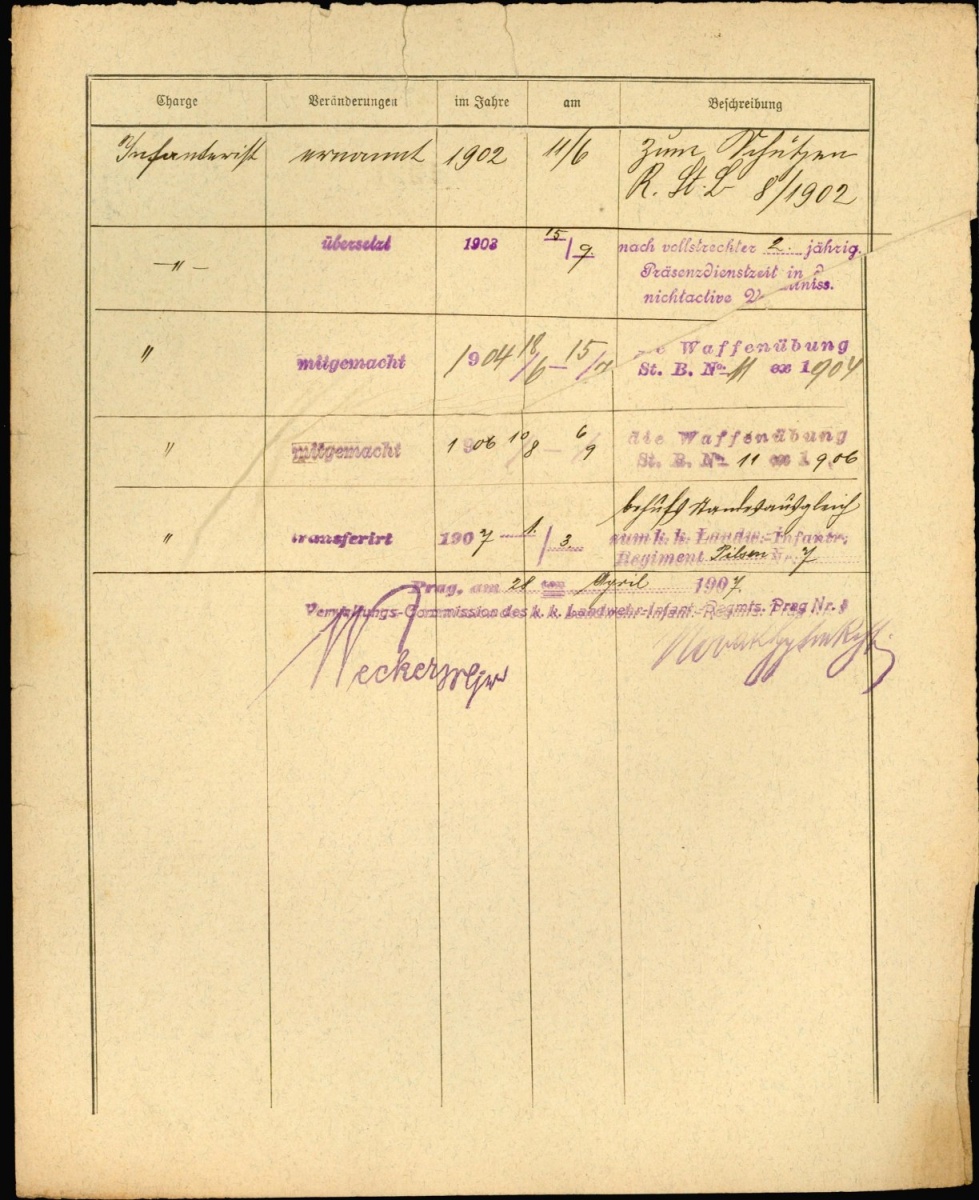 Charge Veränderungen im Jahre am Beschreibung
Infanterist ernannt 1902 11/6 zum Schützen
R. St. B 8/1902
— " — übersetzt 1903 15/9. nach vollstreckter 2. jährig.
Präsenzdienstzeit in
nichtactive
" mitgemacht 1904 18/6 — 15/7 Waffenübung
St. B. No 11 ex 1904
" mitgemacht 1906 10/8 — 6/9 die Waffenübung
St. B. No 11 ex 1906
" transferirt 1907 1./3. behufs Standesausgleich
zum k. k. Landw.-Infantr.
Regiment Pilsen Nr. 7
Prag, am 28 ten April 1907.
Verwaltungs-Commission des k. k. Landwehr-Infant.-Regmts. Prag Nr. 8
Wecker